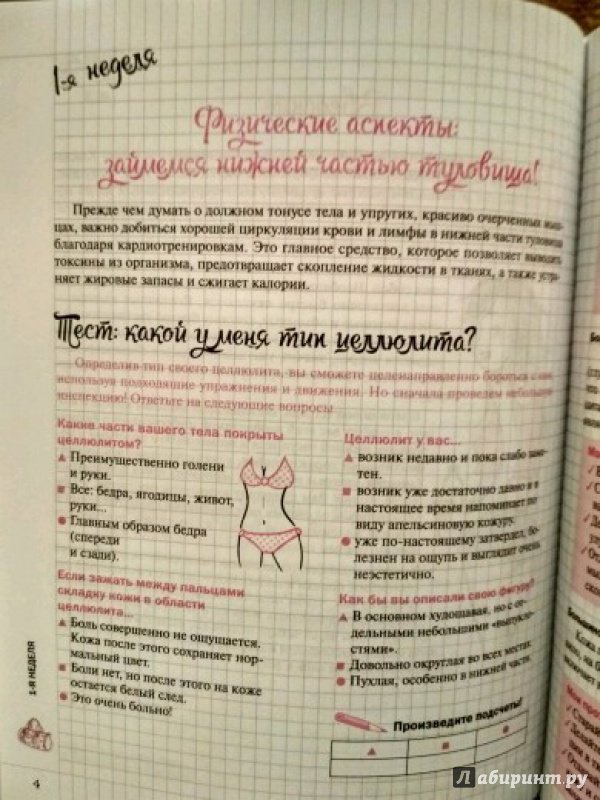 1-я неделя
Физические аспекты:
займемся нижней частью туловища!
Прежде чем думать о должном тонусе тела и упругих, красиво очерченных мыш-
цах, важно добиться хорошей циркуляции крови и лимфы в нижней части туловища
благодаря кардиотренировкам. Это главное средство, которое позволяет выводить
токсины из организма, предотвращает скопление жидкости в тканях, а также устра-
няет жировые запасы и сжигает калории.
Тест: какой у меня тип целлюлита?
Определив тип своего целлюлита, вы сможете целенаправленно бороться с ним,
используя подходящие упражнения и движения. Но сначала проведем небольшую
инспекцию! Ответьте на следующие вопросы
Какие части вашего тела покрыты
целлюлитом?
▲ Преимущественно голени
и руки.
■ Все: бедра, ягодицы, живот,
руки...
● Главным образом бедра
(спереди
и сзади).
Если зажать между пальцами
складку кожи в области
целлюлита...
▲ Боль совершенно не ощущается.
Кожа после этого сохраняет нор-
мальный цвет.
■ Боли нет, но после этого на коже
остается белый след.
● Это очень больно!
Целлюлит у вас...
▲ возник недавно и пока слабо заме-
тен.
■ возник уже достаточно давно и в
настоящее время напоминает по
виду апельсиновую кожуру.
● уже по-настоящему затвердел, бо-
лезнен на ощупь и выглядит очень
неэстетично.
Как бы вы описали свою фигуру?
▲ В основном худощавая, но с от-
дельными небольшими «выпукло-
стями».
■ Довольно округлая во всех местах.
● Пухлая, особенно в нижней части.
Произведите подсчеты!
▲ ■ ●
1-Я НЕДЕЛЯ
4
Лабиринт.ру